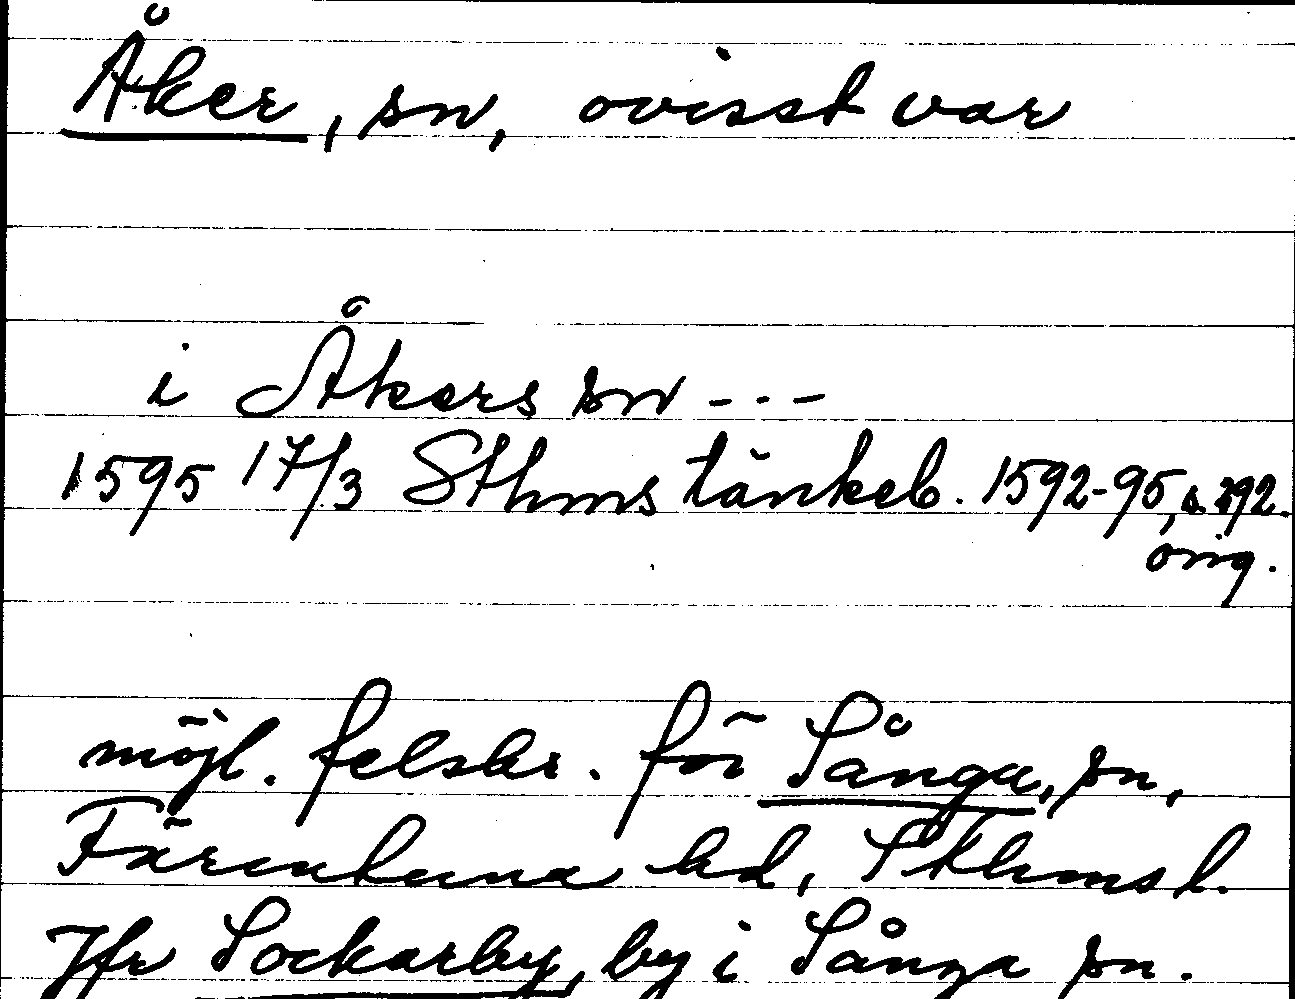 Åker, sn, ovisst var
i Åkers sn - - -
1595 17/3 Sthms tänkeb. 1592-95, s. 292.
orig.
möjl. felskr. för Sånga, sn,
Färentuna hd, Sthms l.
Jfr Sockarby, by i Sånga sn.